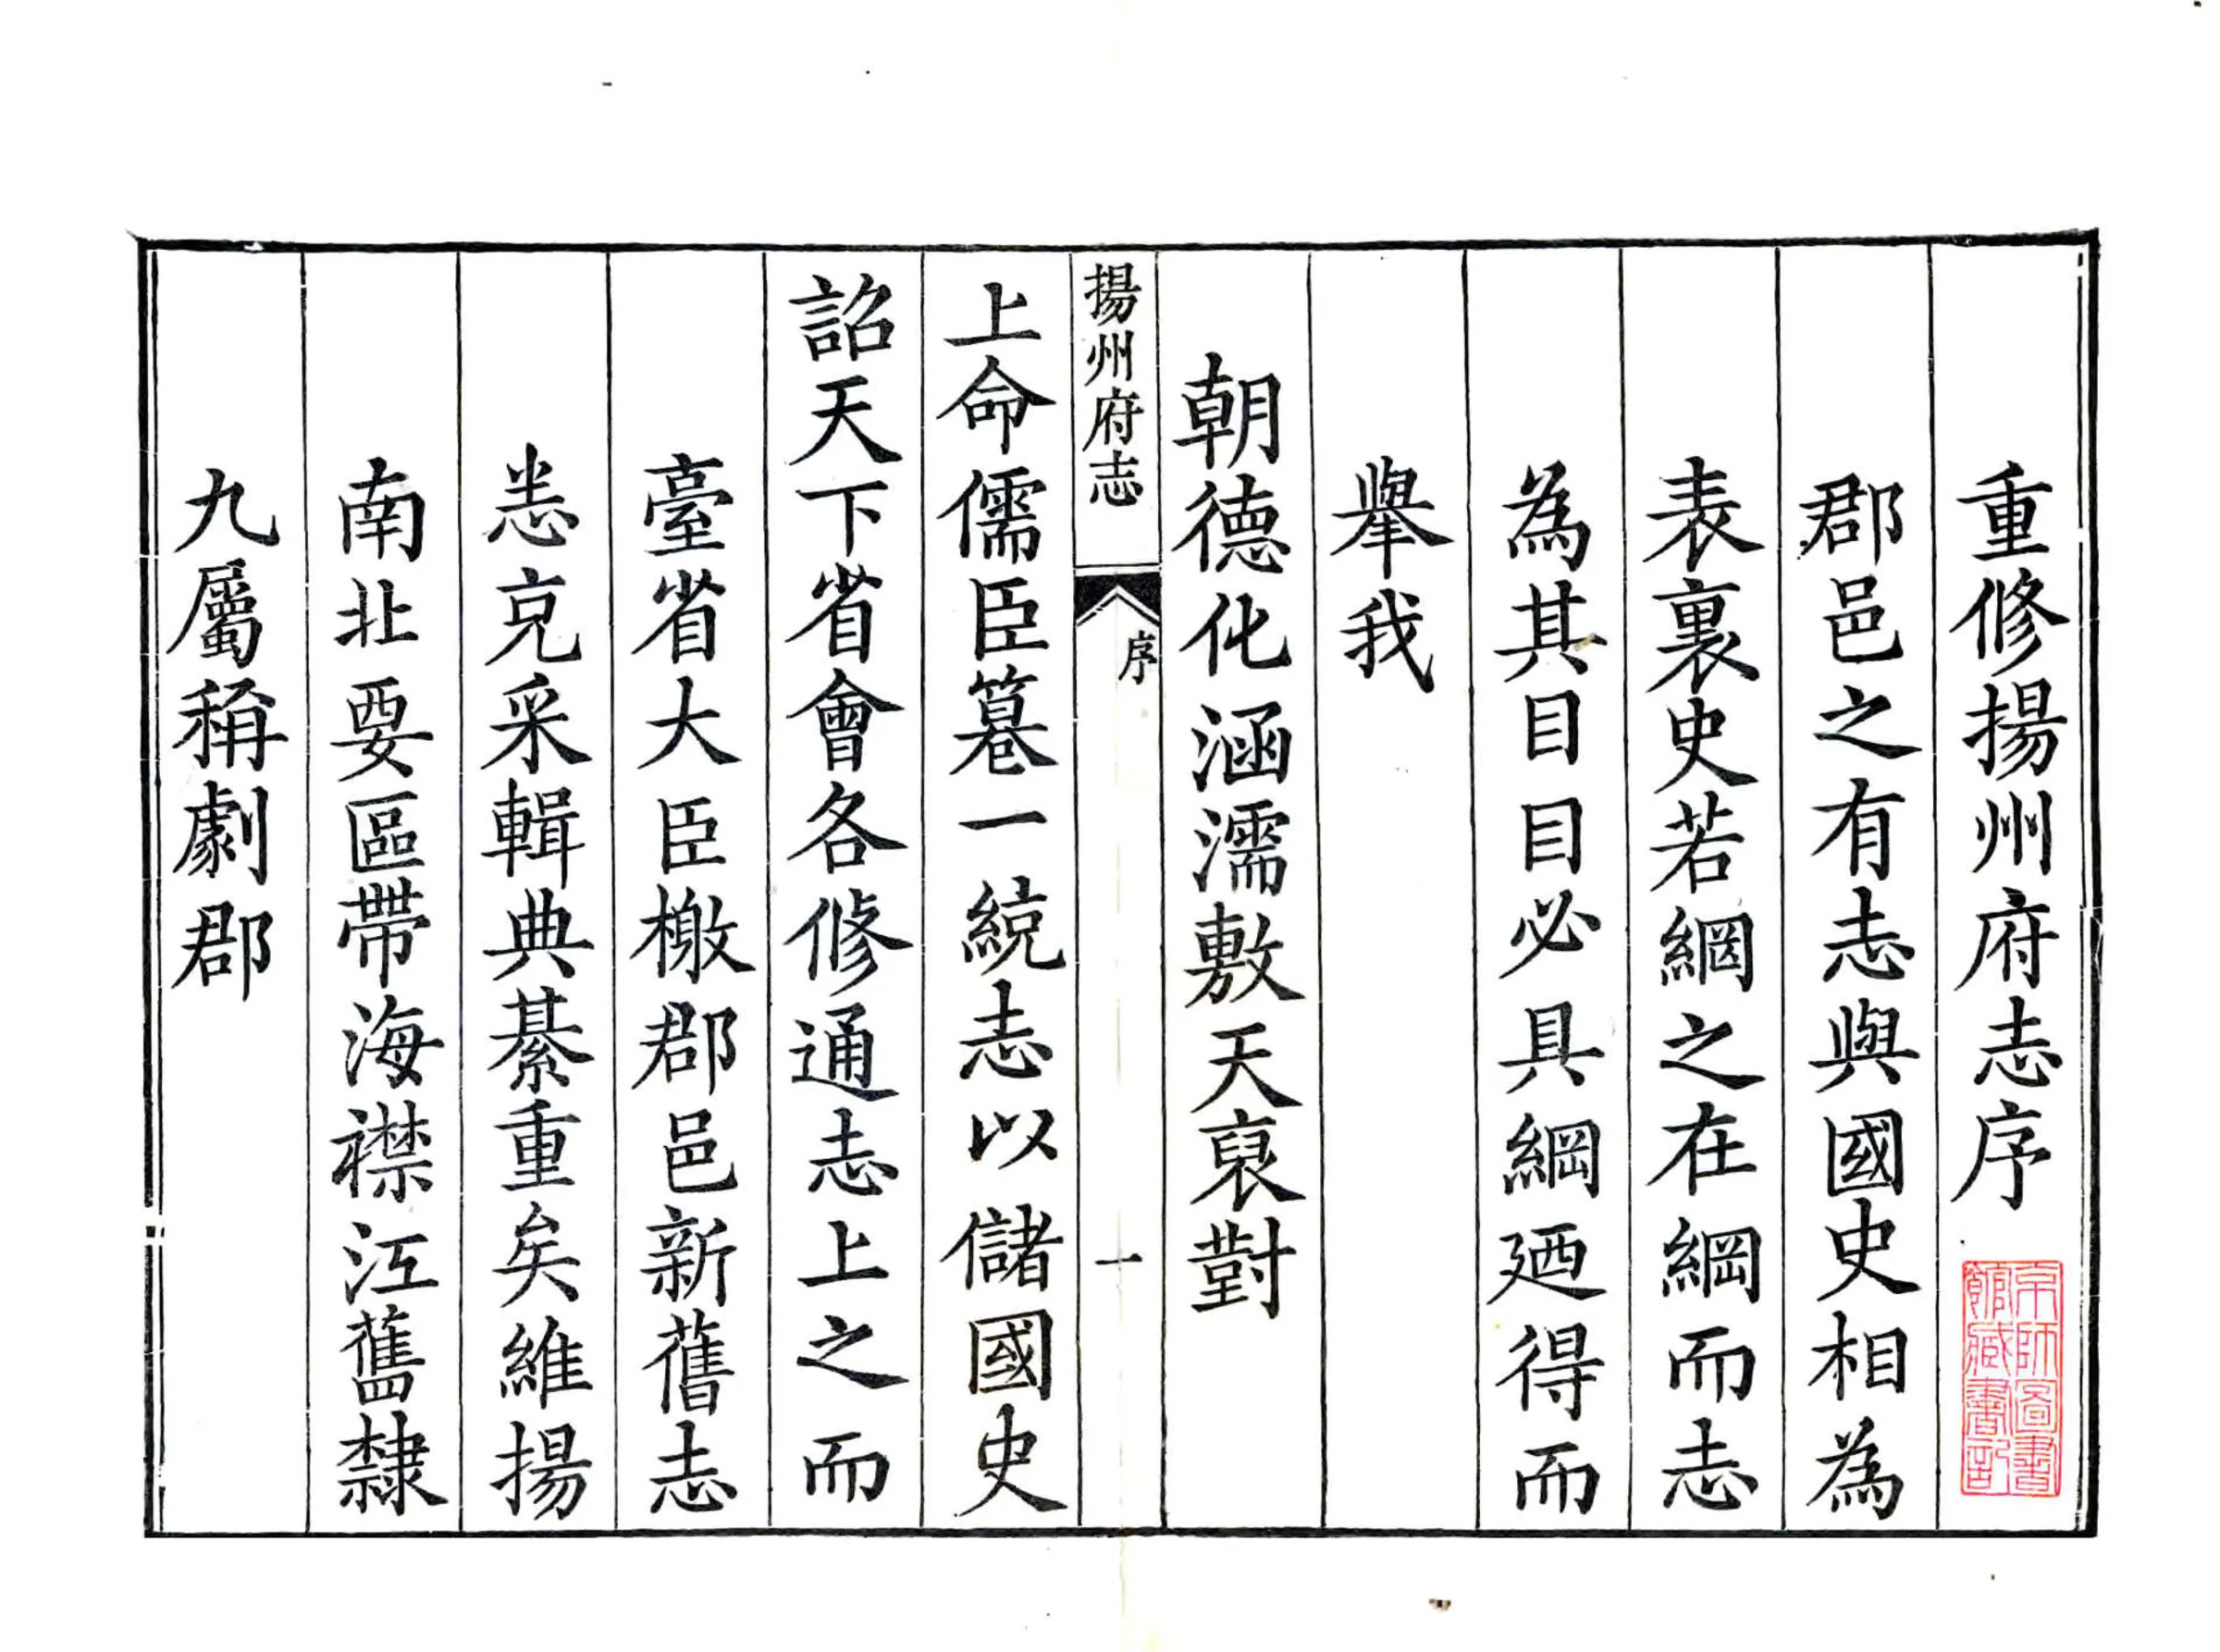 重修揚州府志序
京師圖書
館藏書記
郡邑之有志與國史相為
表裏史若綱之在綱而志
為其目目必具綱廼得而
舉我
朝德化涵濡敷天裒對
揚州府志
序
一
上命儒臣纂一統志以儲國史
詔天下省會各修通志上之而
臺省大臣檄郡邑新舊志
恙克采輯典綦重矣維揚
南北要區帶海襟江舊隸
九屬稱劇郡